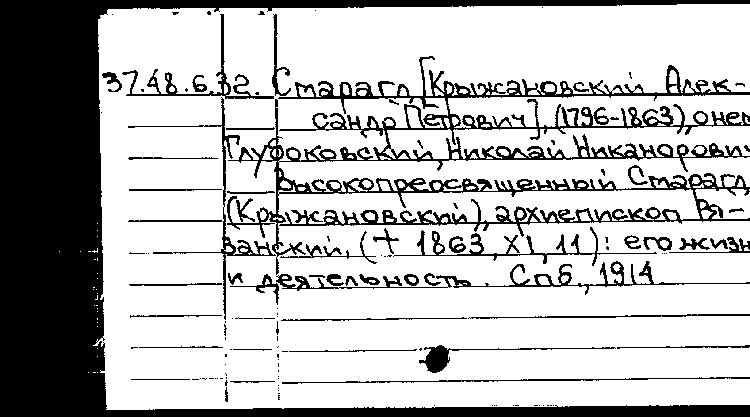 37.48.6.32. Смарагд [Крыжановский, Алек-
сандр Петрович], (1796-1863), о нем
Глубоковский, Николай Никанорович
Высокопреосвященный Смарагд
(Крыжановский), архиепископ Ря-
занский, († 1863, XI, 11): его жизн
и деятельность. Спб., 1914.